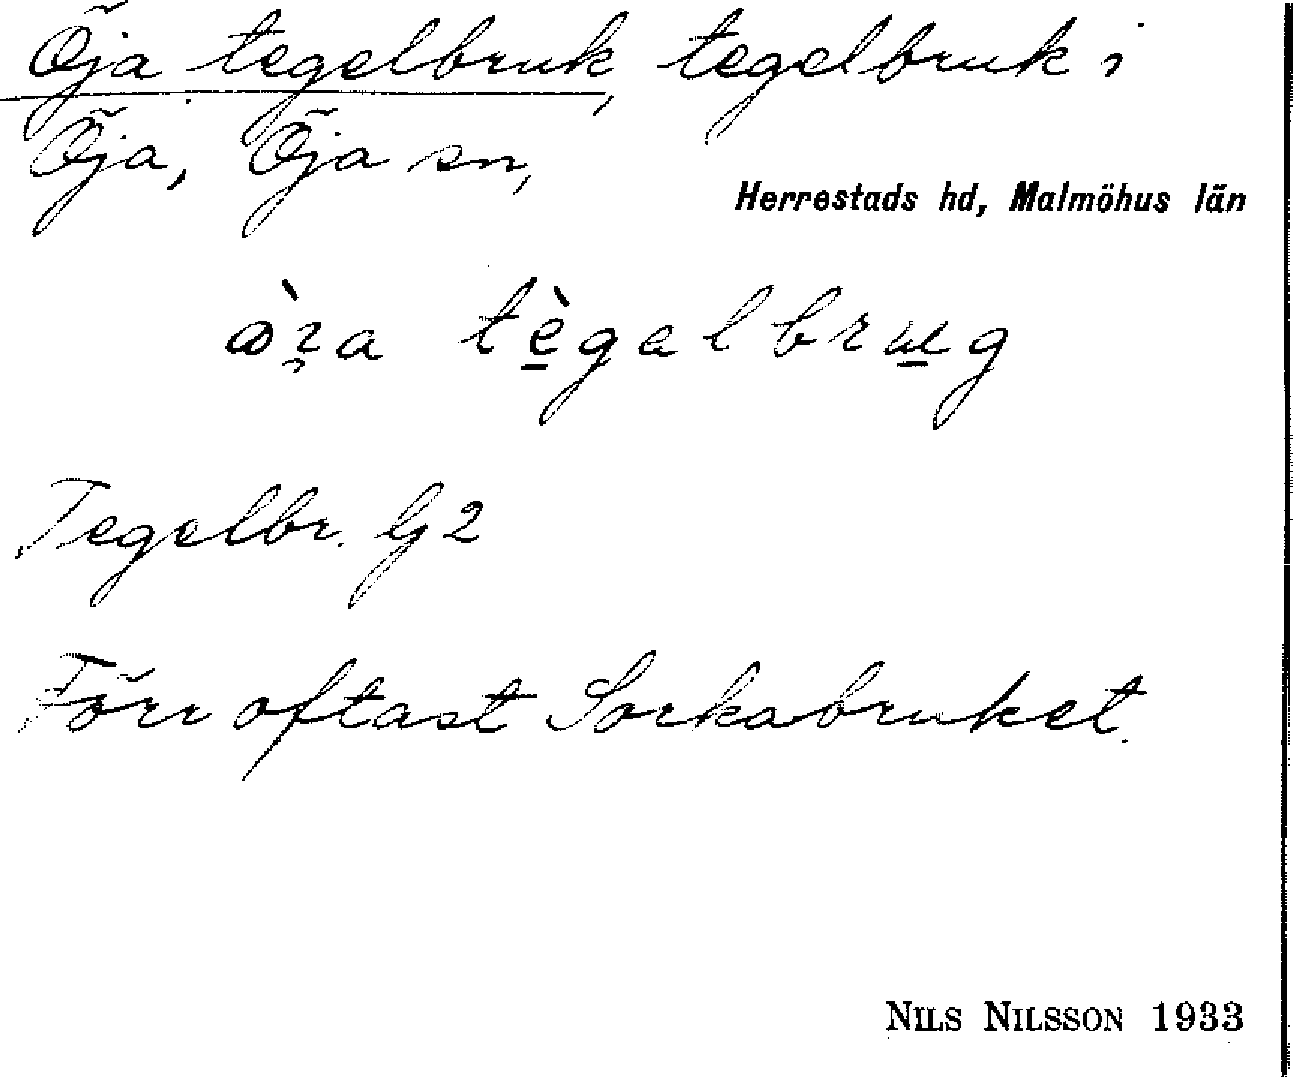 Öja tegelbruk, tegelbruk i
Öja, Öja sn,
Herrestads hd, Malmöhus län
tègelbrug
Tegelbr. G2
Förr oftast Sorkabruket.
NILS NILSSON 1933